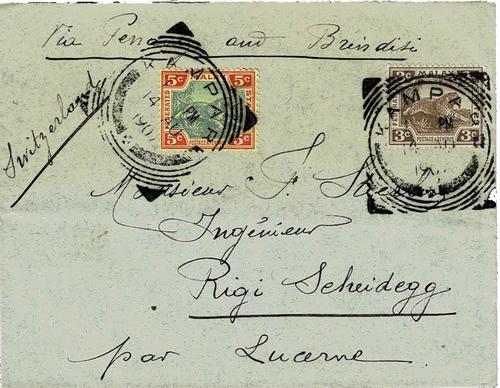 Via and Brindisi
Switzerland
KAMPAR
14
PM
190
5c 5c
FEDERATED MALAY STATES
POSTAGE & REVENUE
5c 5c
KAMPAR
PM
190
3c 3c
FEDERATED MALAY
POSTAGE & REVENUE
3c
Monsieur F.
Ingénieur
Rigi Scheidegg
par Lucerne